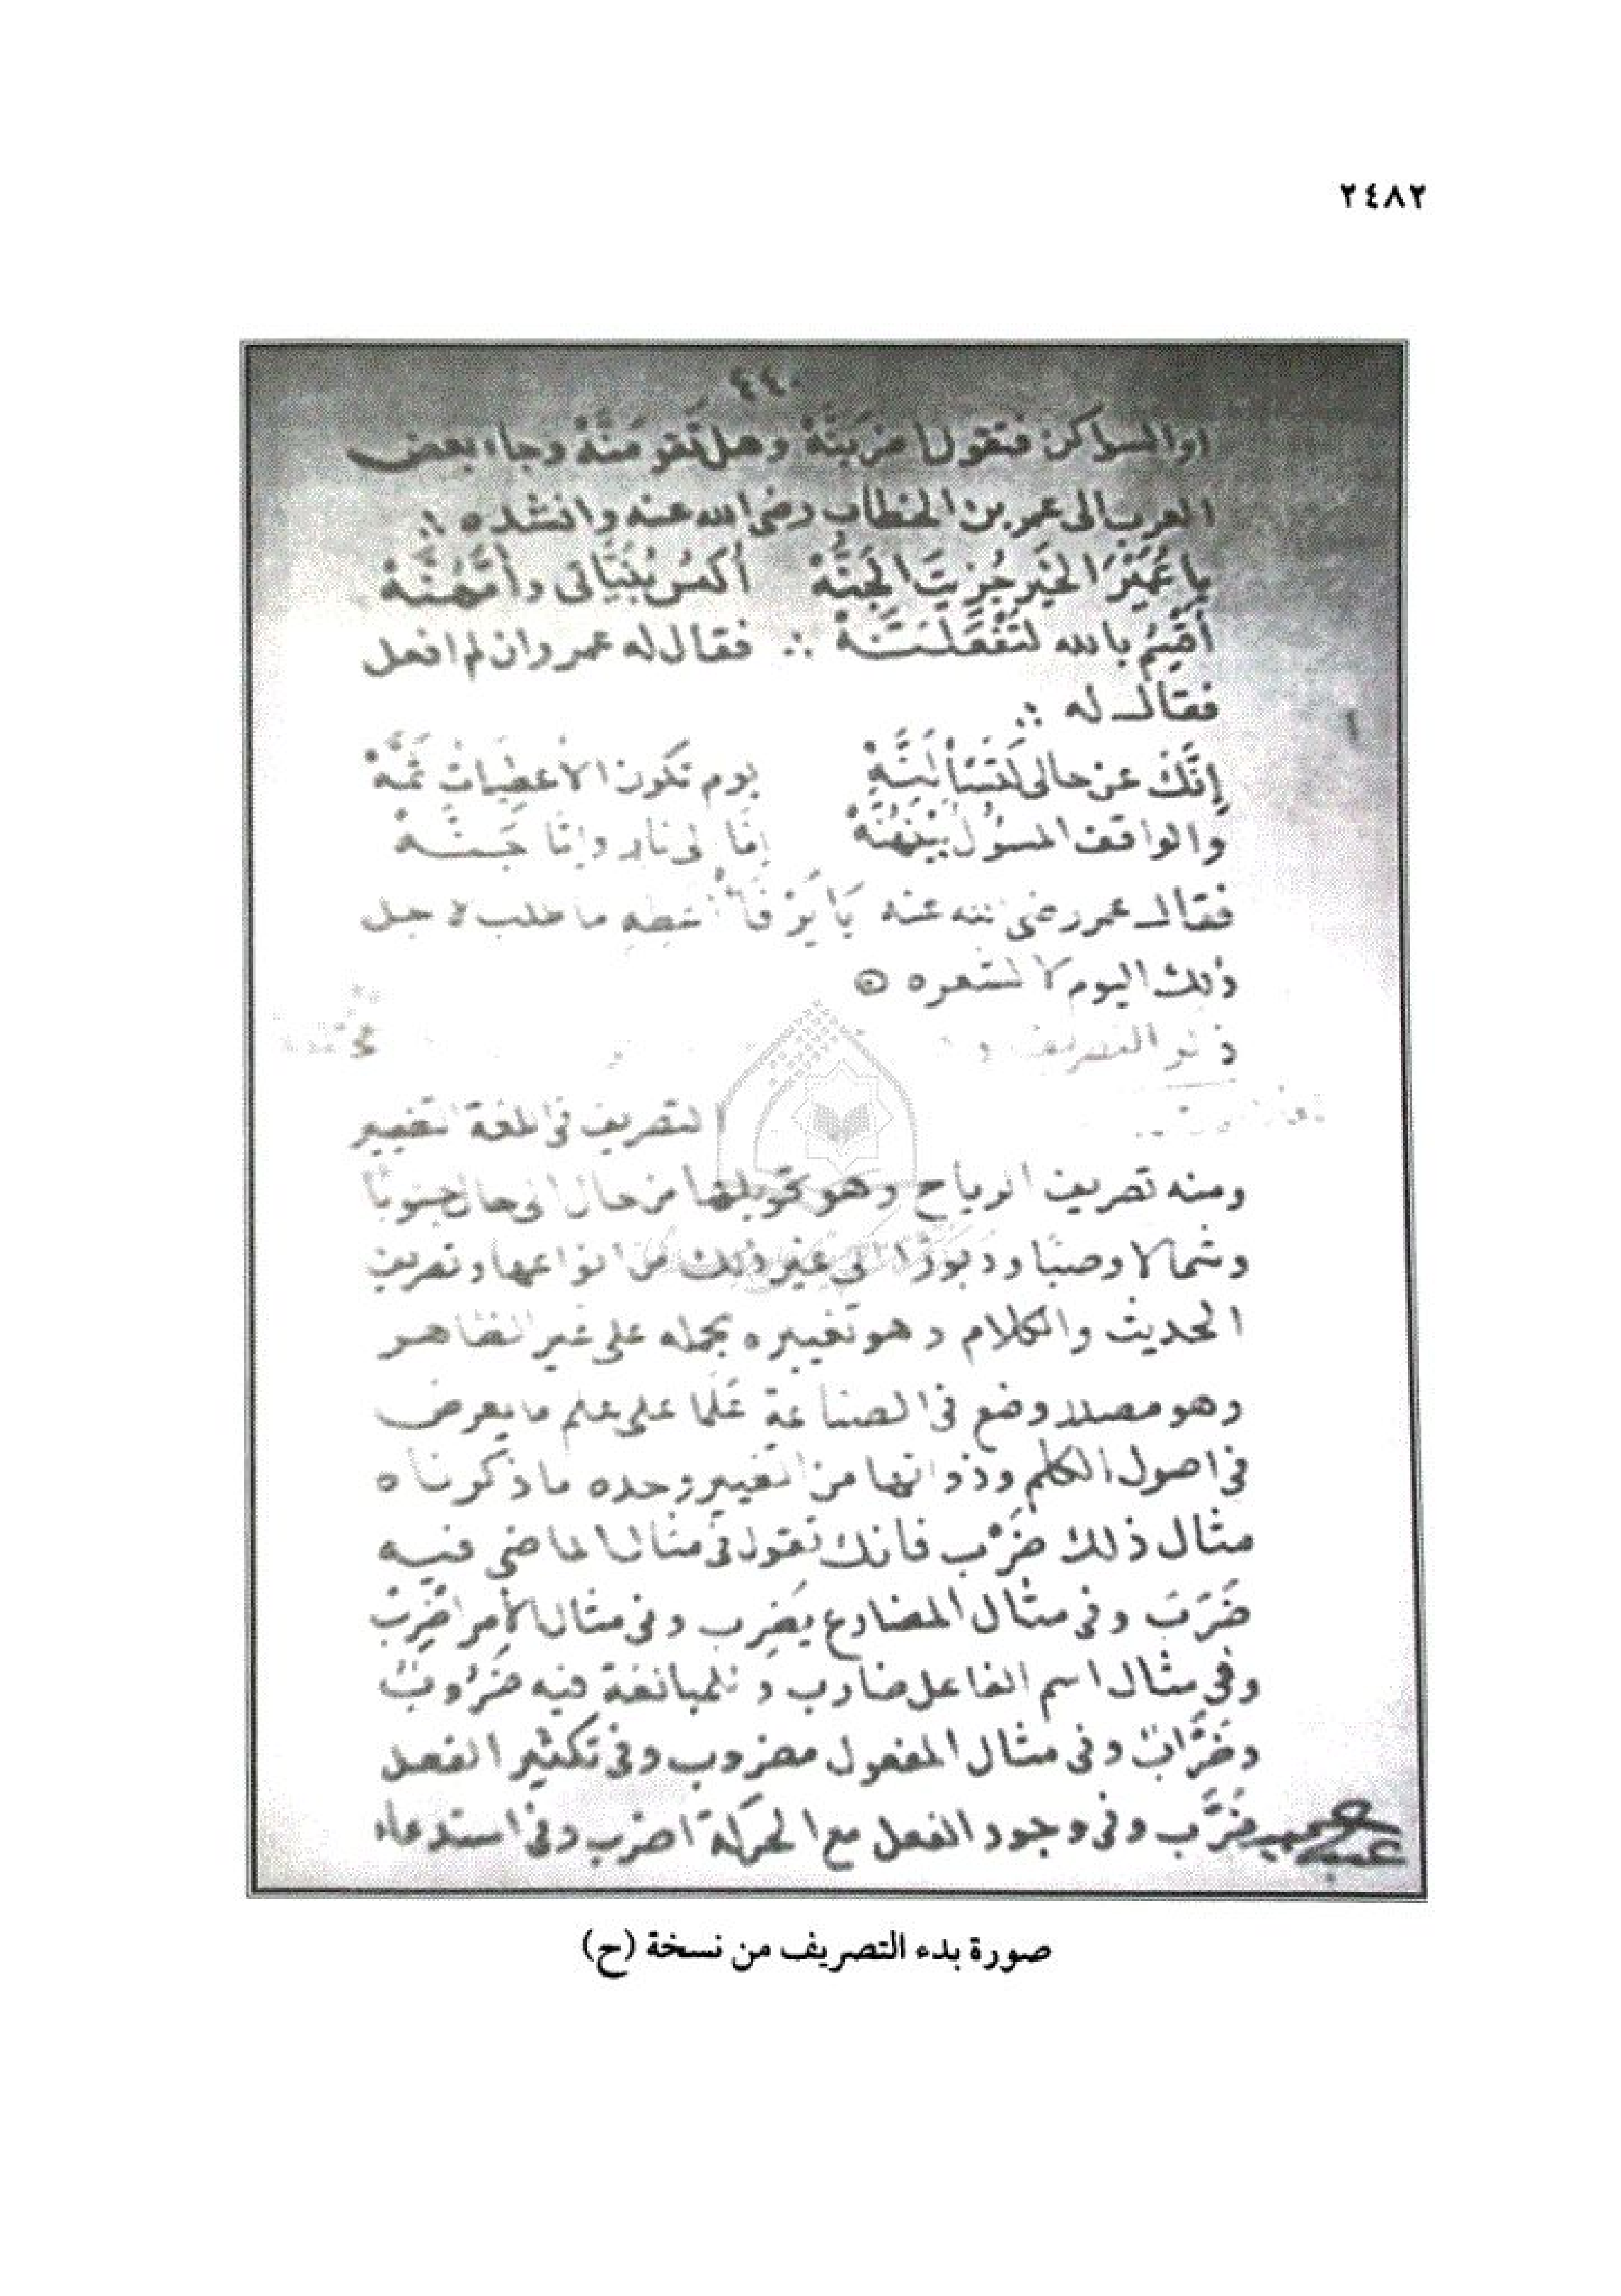 ٢٤٨٢
٤٤٠
او السواكن فتقول اضربنَّهْ وهل تقومَنَّهْ وجاء بعض
العرب الى عمر بن الخطاب رضى الله عنه وانشده
يا عُمَرَ الخَير جُزِيتَ الجَنَّهْ أكسُ بُنَيَّاتى وأمَّهُنَّهْ
أُقسِمُ بالله لتَفْعَلَنَّهْ ∴ فقال له عمر وان لم افعل
فقال له ∴
إنَّكَ عن حالى لَتُسْأَلَنَّهْ يوم تكون الأعطِيات ثَمَّهْ
والواقف المسؤُل بَيْنَهُنَّهْ إمَّا الى نار وإمَّا جَنَّهْ
فقال عمر رضى الله عنه يَا يَرْفَأُ أعطِهِ ما طلب لاجل
ذلك اليوم لا لشعره
ذكر التصريف
التصريف فى اللغة التغيير
ومنه تصريف الرياح وهو تحويلها من حال الى حال جنوبًا
وشمالا وصبًا ودبورًا الى غير ذلك من انواعها وتصريف
الحديث والكلام وهو تغييره بحمله على غير الظاهر
وهو مصدر وضع فى الصناعة عَلَمًا على علم ما يعرض
فى اصول الكلم وذواتها من التغيير وحده ما ذكرناه
مثال ذلك ضَرْب فانك تقول فى مثال الماضى فيه
ضَرَبَ وفى مثال المضارع يضرِب وفى مثال الأمر اضْرِبْ
وفى مثال اسم الفاعل ضارب وللمبالغة فيه ضَرُوبٌ
وضَرَّابٌ وفى مثال المفعول مضروب وفى تكثير الفعل
ضَرَّب وفى وجود الفعل مع الحركة اضرب وفى استدعاء
صورة بدء التصريف من نسخة (ح)